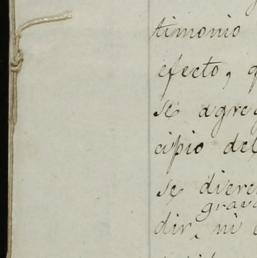 timonio
efecto, q
se agre
cipio del
se diere
grava
dir, ni